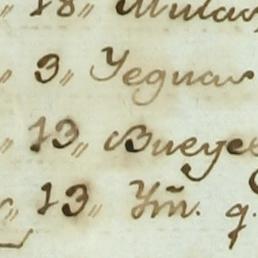 " 18 " Mulas
" 3 " Yeguas
" 13 " Bueyes
" 13 " Ym̃. q.